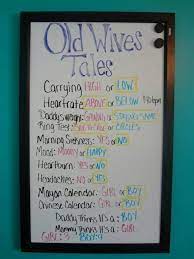 Old Wives
Tales
Carrying HIGH or LOW
Heartrate ABOVE or BELOW 140bpm
Daddy's weight: GAINING or STAYING SAME
Ring Test: or CIRCLES
Morning Sickness: YES or NO
Mood: MOODY or HAPPY
Heartburn: YES or NO
Headaches: YES or NO
Mayan Calendar: GIRL or BOY
Chinese Calendar: GIRL or BOY
Daddy Thinks It's a: BOY
Mommy Thinks It's a: GIRL
GIRL: 3 BOY: 9